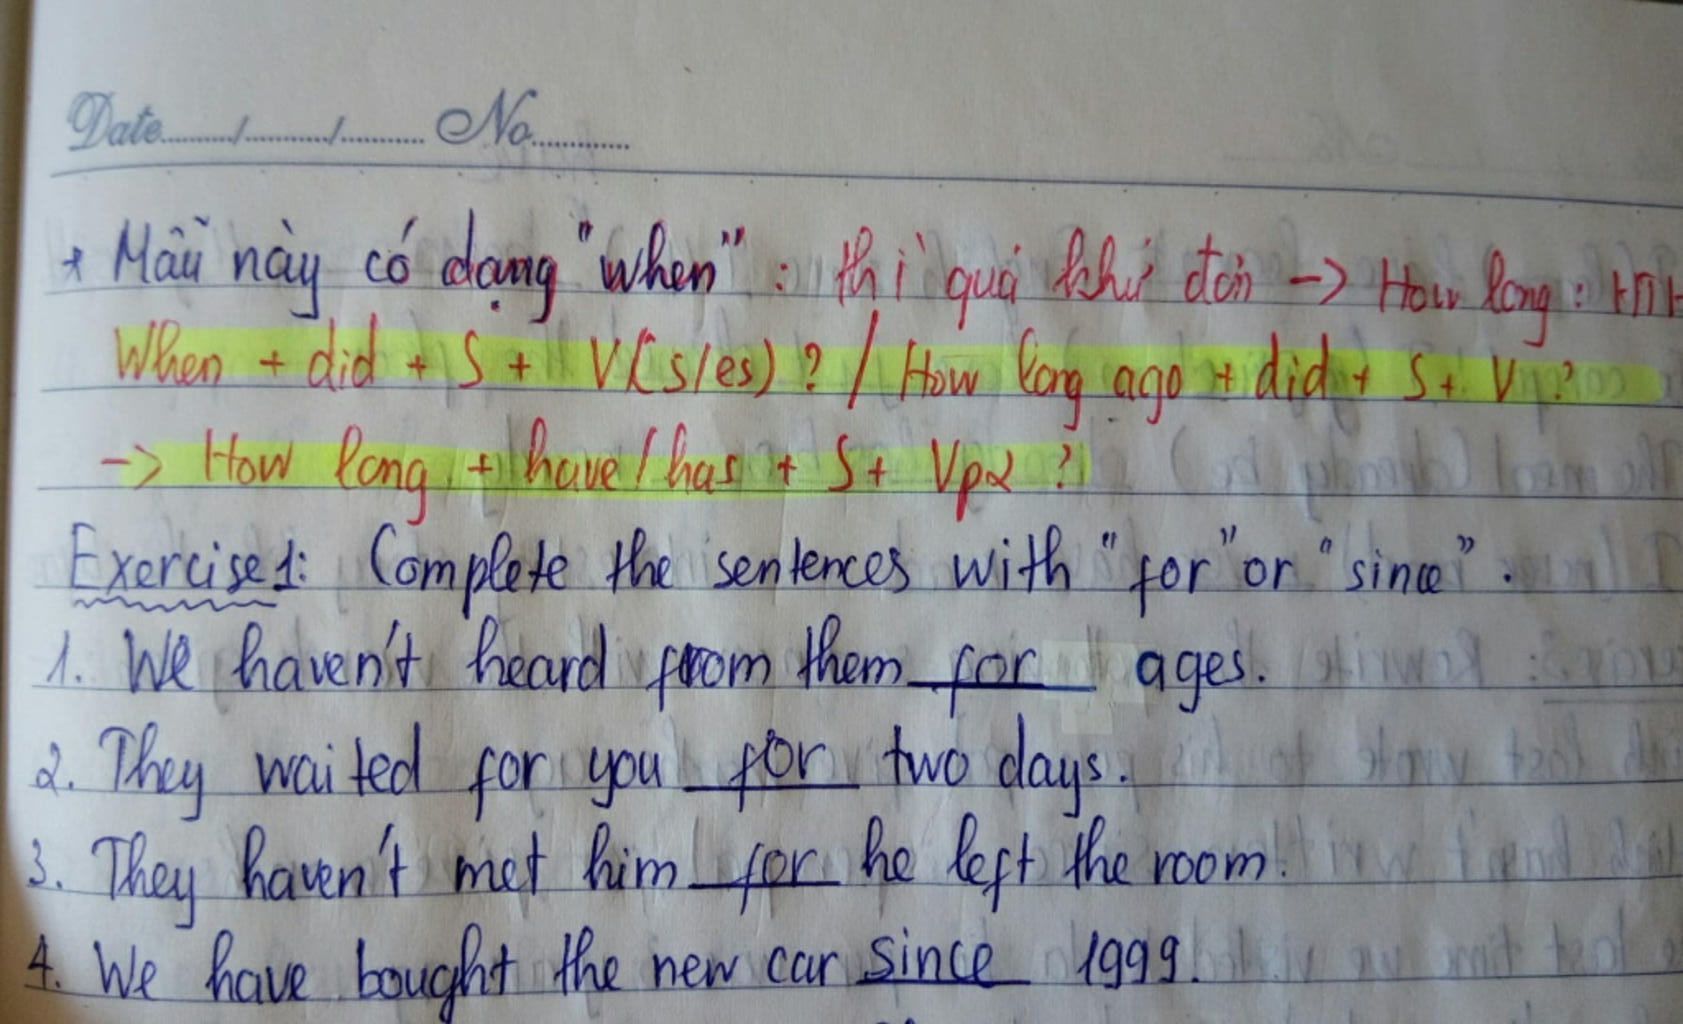 Date......../........./......... No............
* Mẫu này có dạng "when" : thì quá khứ đơn -> How long : HTHT
When + did + S + V(s/es) ? / How long ago + did + S + V ?
-> How long + have / has + S + Vp2 ?
Exercise 1: Complete the sentences with "for" or "since".
1. We haven't heard from them for ages.
2. They waited for you for two days.
3. They haven't met him for he left the room.
4. We have bought the new car since 1999.